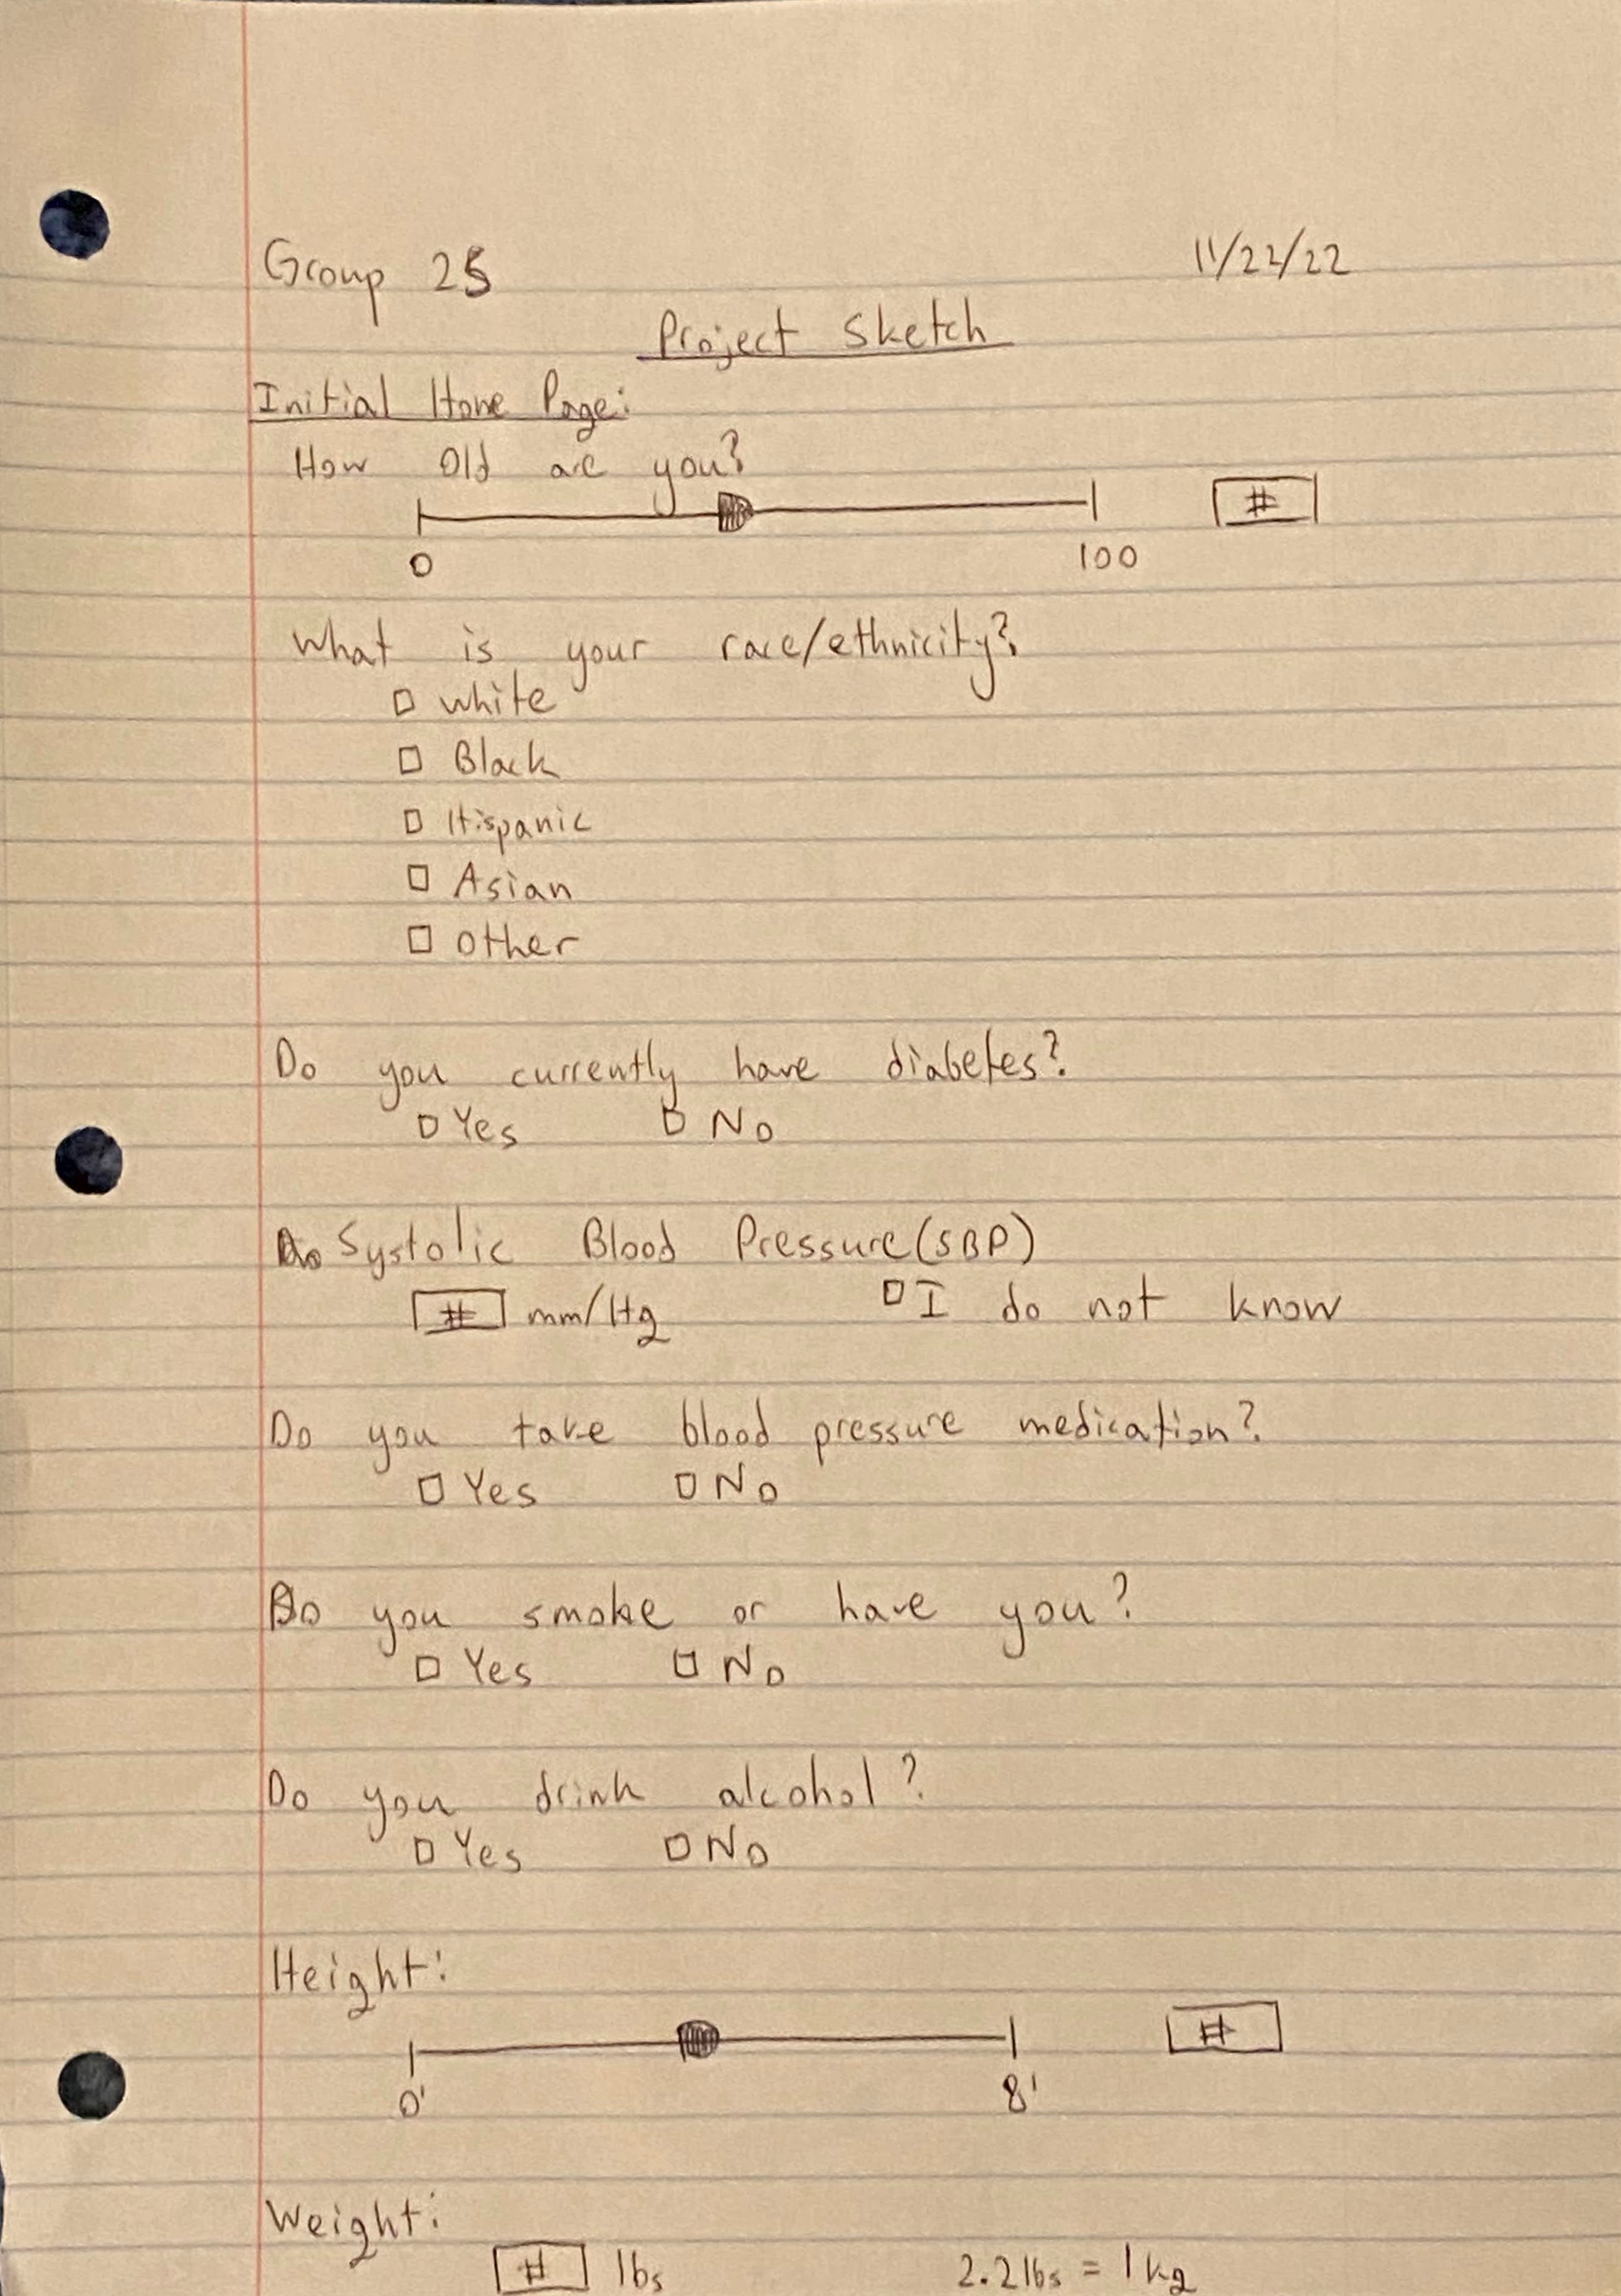 Group 25 11/22/22
Project Sketch
Initial Home Page:
How Old are you?
#
0 100
What is your race/ethnicity?
□ White
□ Black
□ Hispanic
□ Asian
□ Other
Do you currently have diabetes?
□ Yes □ No
Systolic Blood Pressure (SBP)
# mm/Hg □ I do not know
Do you take blood pressure medication?
□ Yes □ No
Do you smoke or have you?
□ Yes □ No
Do you drink alcohol?
□ Yes □ No
Height:
#
0' 8'
Weight:
# lbs 2.2lbs = 1kg